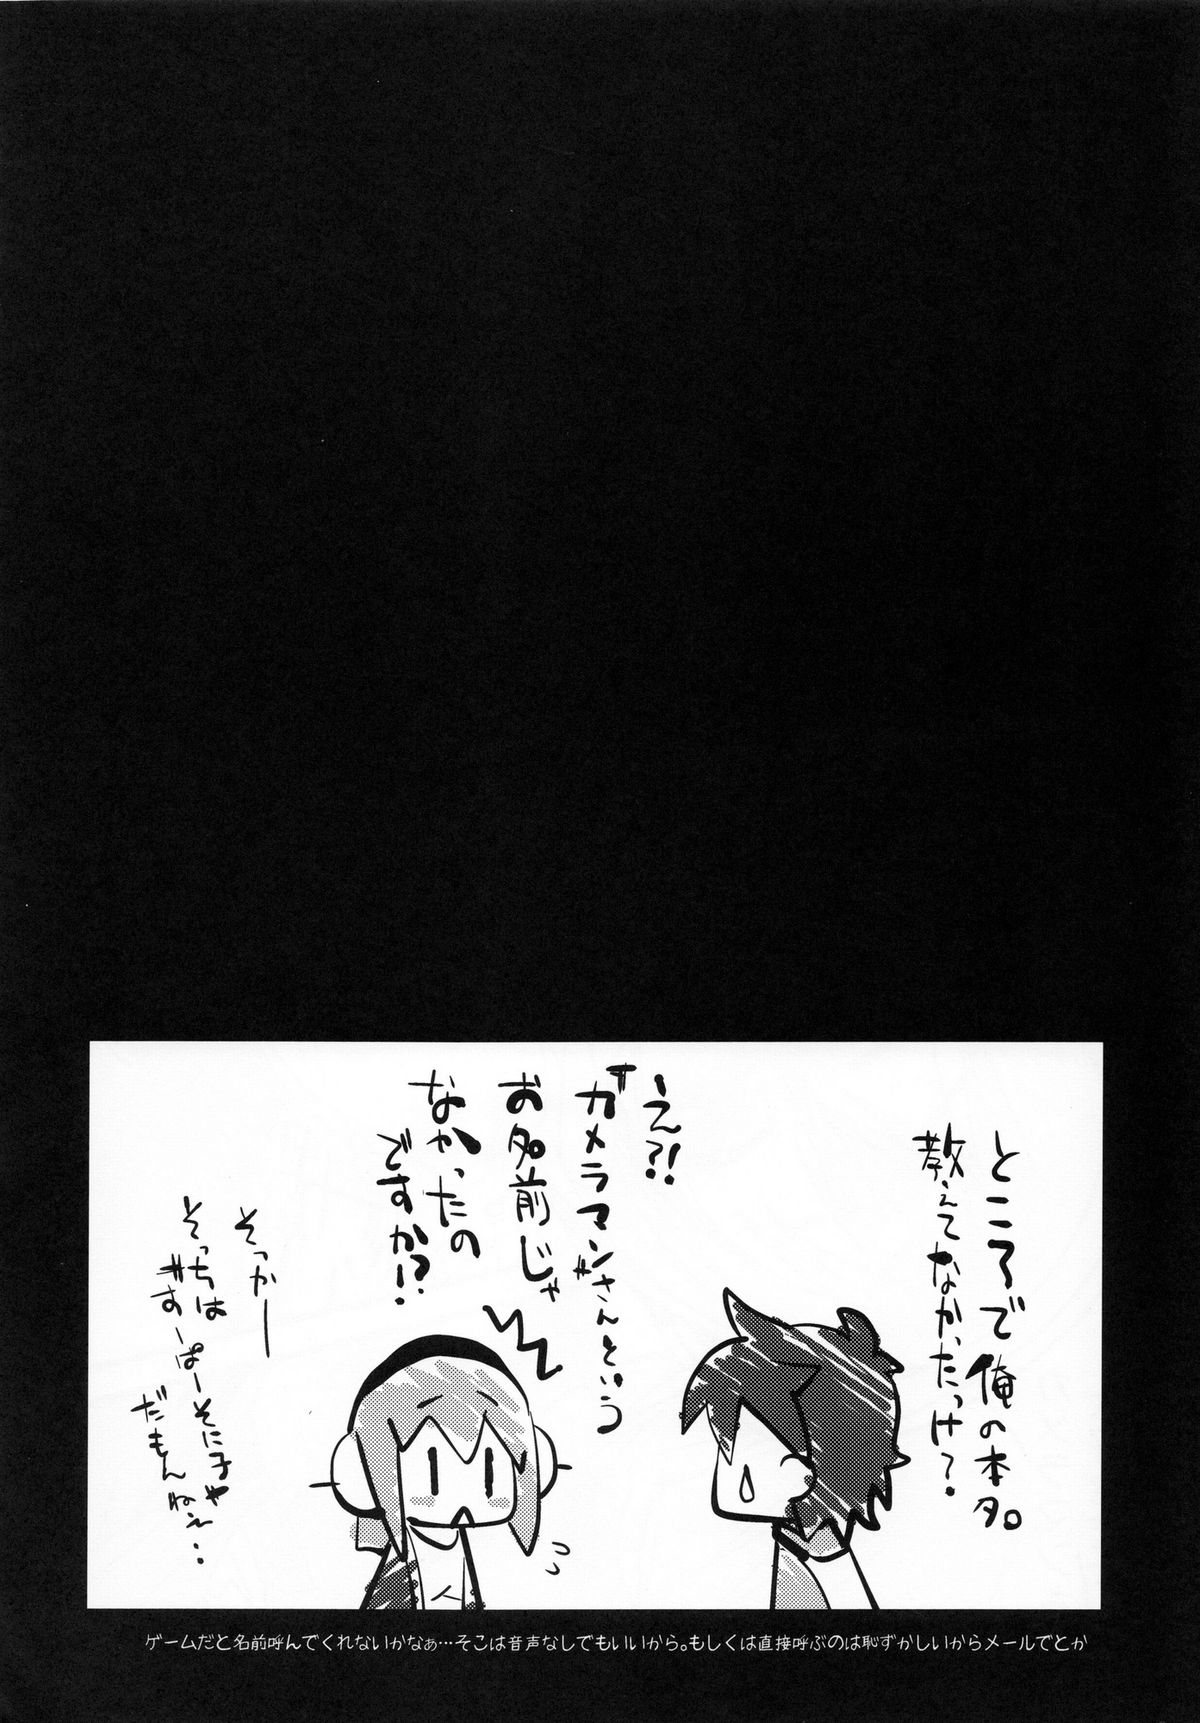 ところで俺の本名
教えてなかったっけ?
えっ?!
カメラマンさんという
お名前じゃ
なかったの
ですか!?
そっかー
そっちは
すーぱーそに子や
だもんねぇ..
ゲームだと名前呼んでくれないかなぁ…そこは音声なしでもいいから。もしくは直接呼ぶのは恥ずかしいからメールでとか